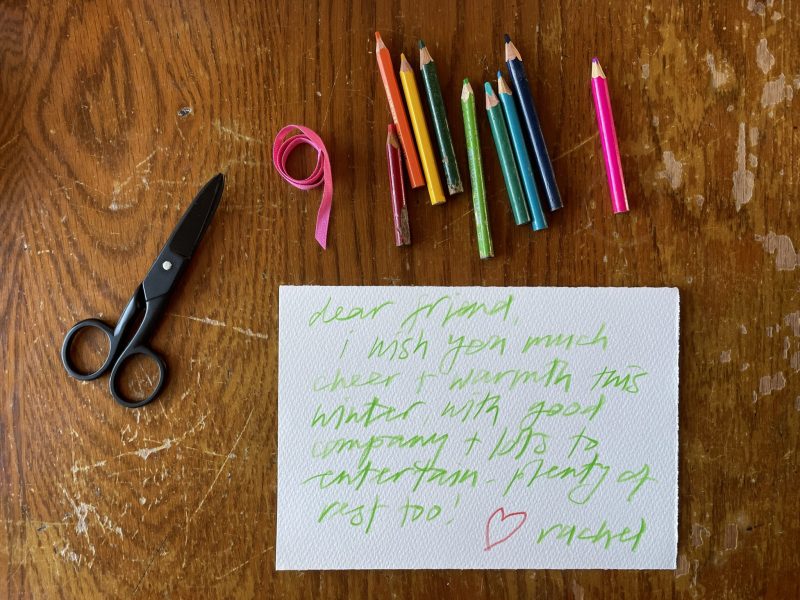 dear friend,
i wish you much
cheer + warmth this
winter with good
company + lots to
entertain. plenty of
rest too!
rachel